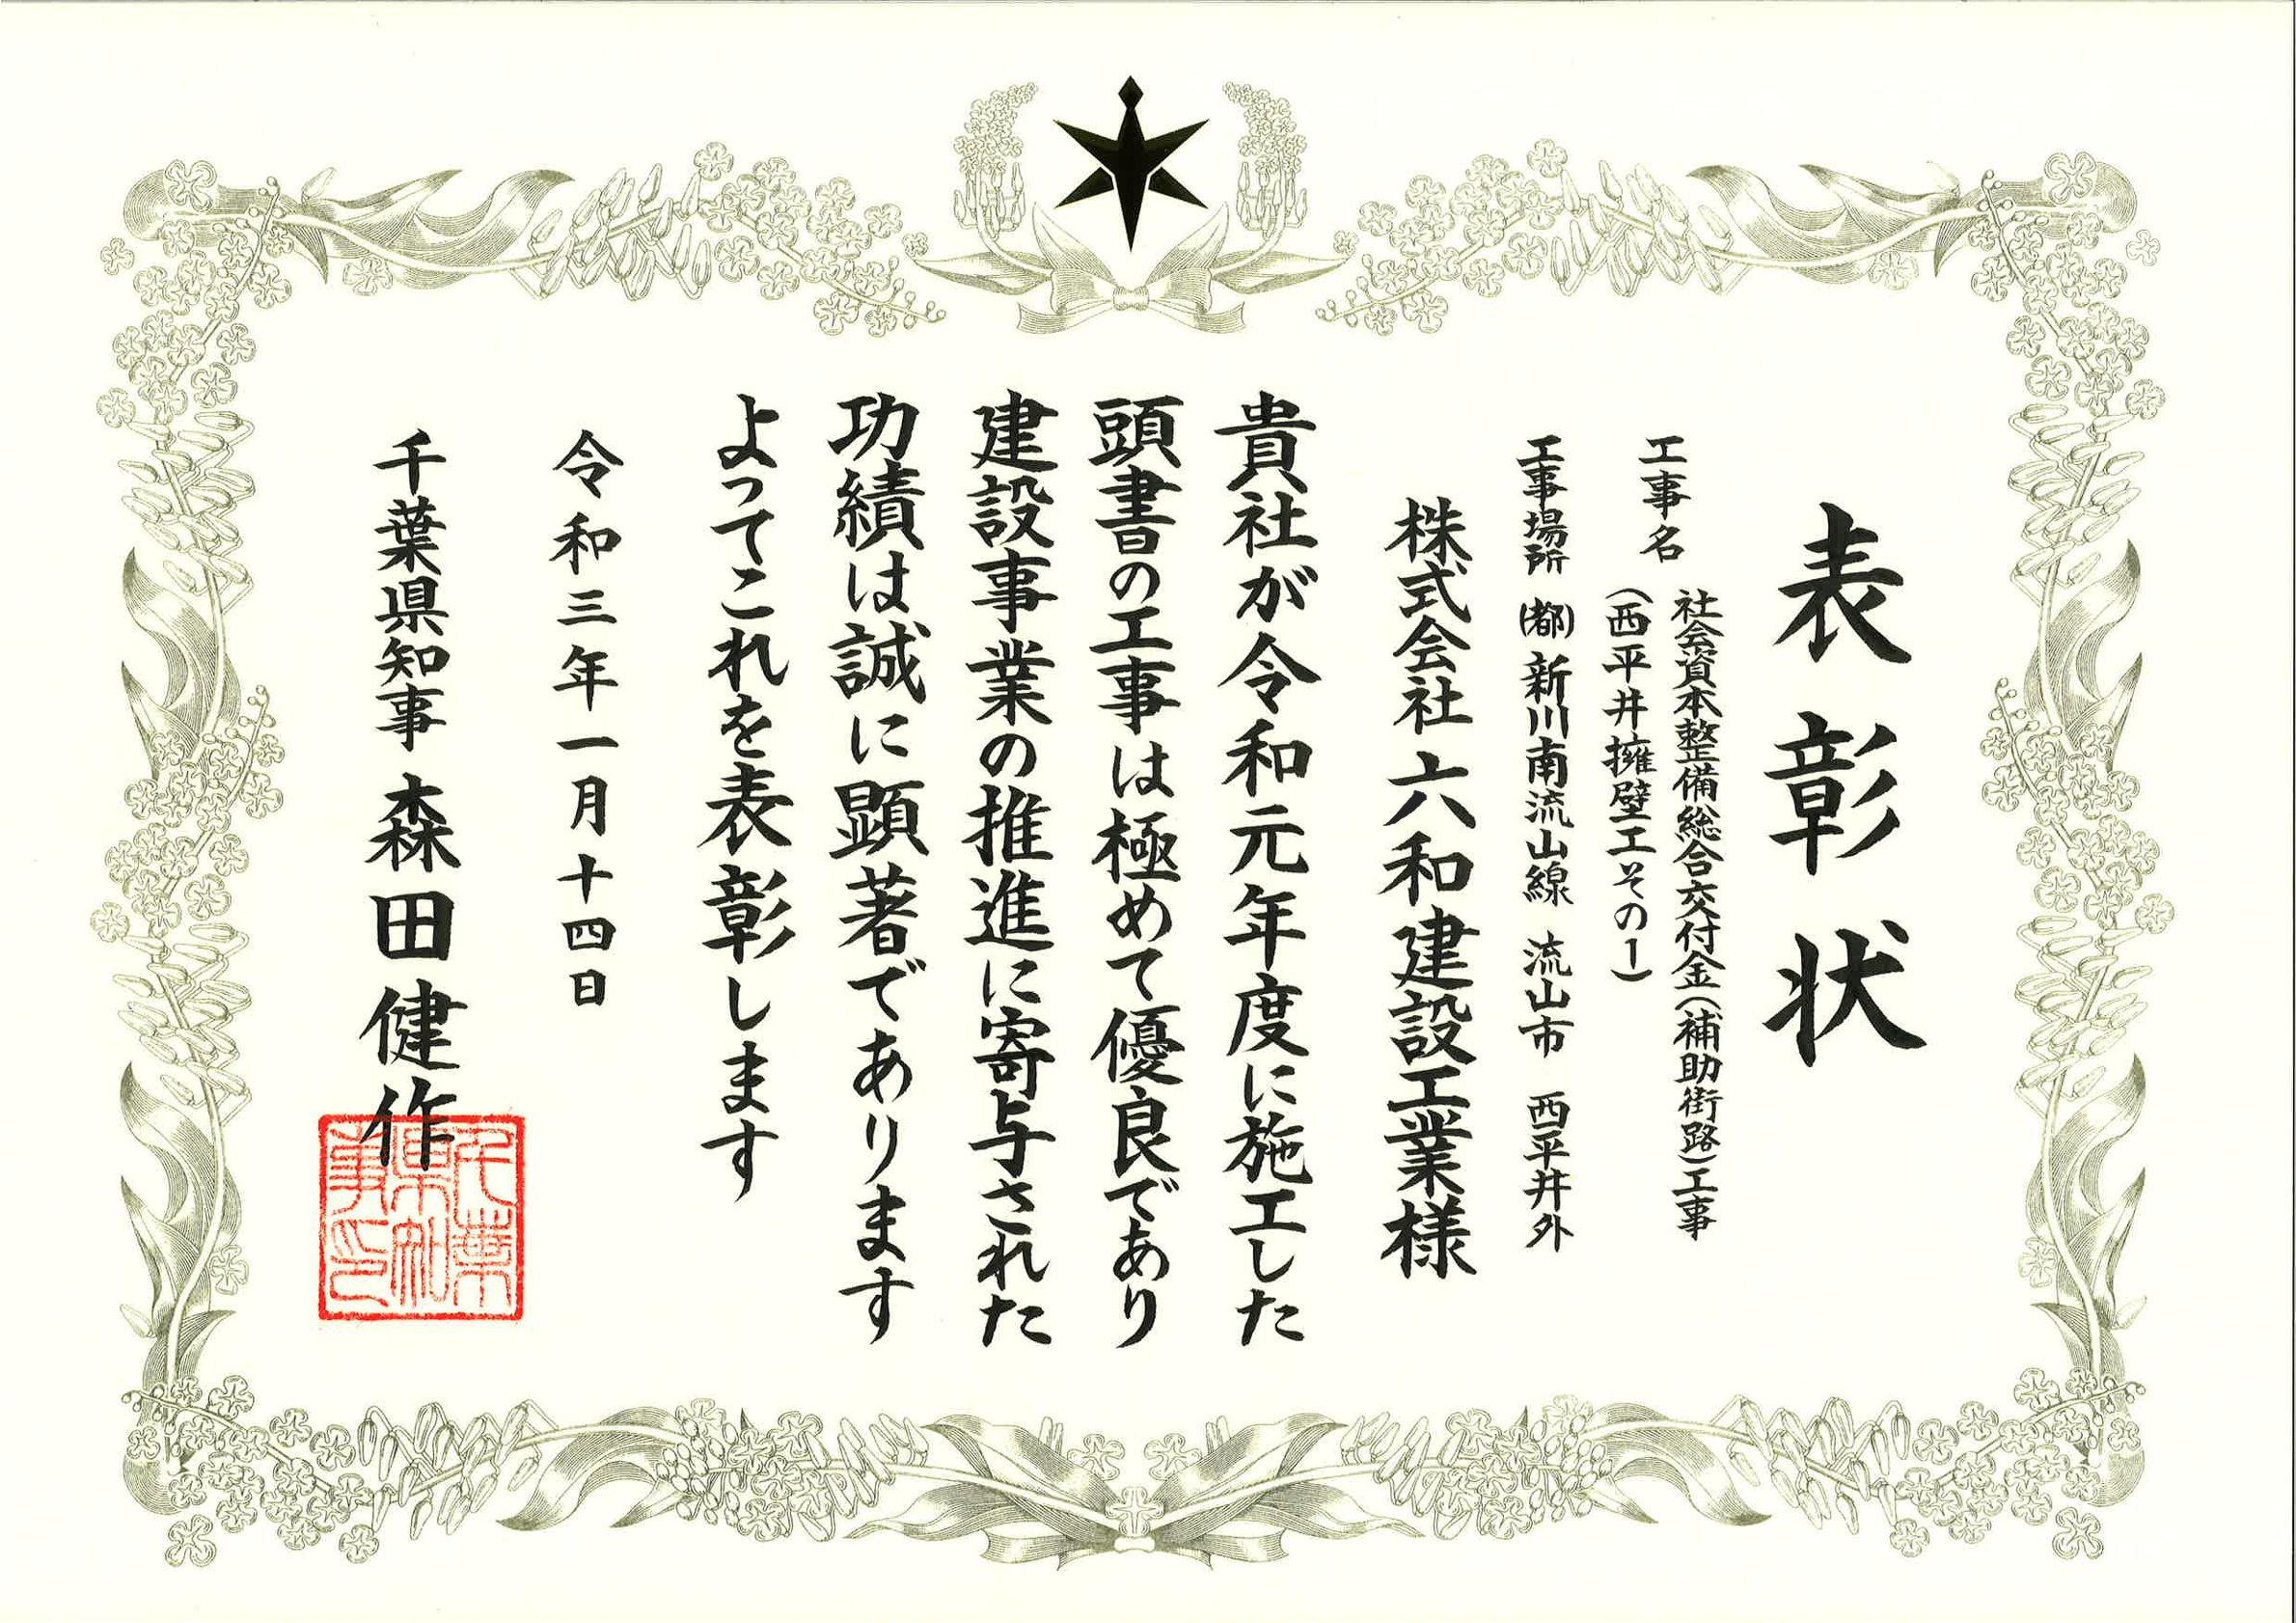 表彰状
工事名
社会資本整備総合交付金(補助街路)工事
(西平井擁壁工その1)
工事場所 (都)新川南流山線 流山市 西平井外
株式会社 六和建設工業様
貴社が令和元年度に施工した
頭書の工事は極めて優良であり
建設事業の推進に寄与された
功績は誠に顕著であります
よってこれを表彰します
令和三年一月十四日
千葉県知事 森田健作
千葉
県知
事印